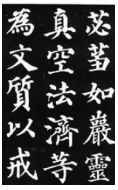 苾蒭如巖靈
真空法濟等
為文質以戒